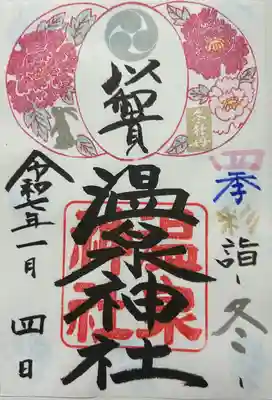 冬牡丹
四季彩詣-冬-
奉賀
温泉神社
温泉
神社
令和七年一月四日